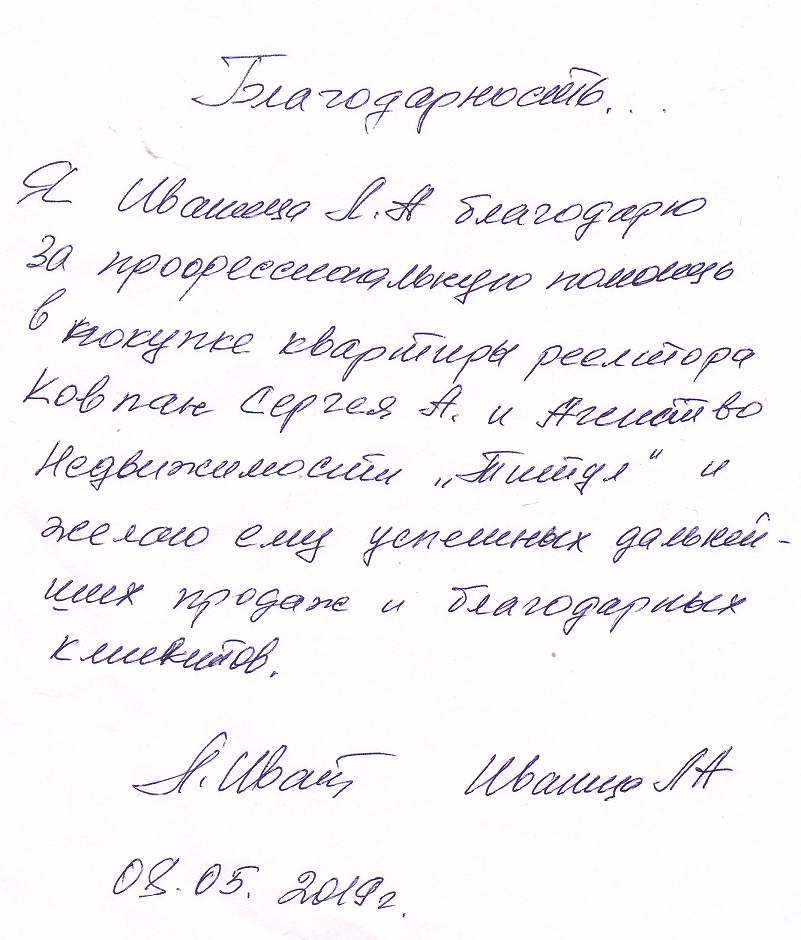 Благодарность...
Я Иваница Л.А благодарю
за профессиональную помощь
в покупке квартиры реелтора
Ковпак Сергея А. и Агенство
Недвижимости „Титул“ и
желаю ему успешных дальней-
ших продаж и благодарных
клиентов.
Л. Иваница ЛА
08.05.2019г.